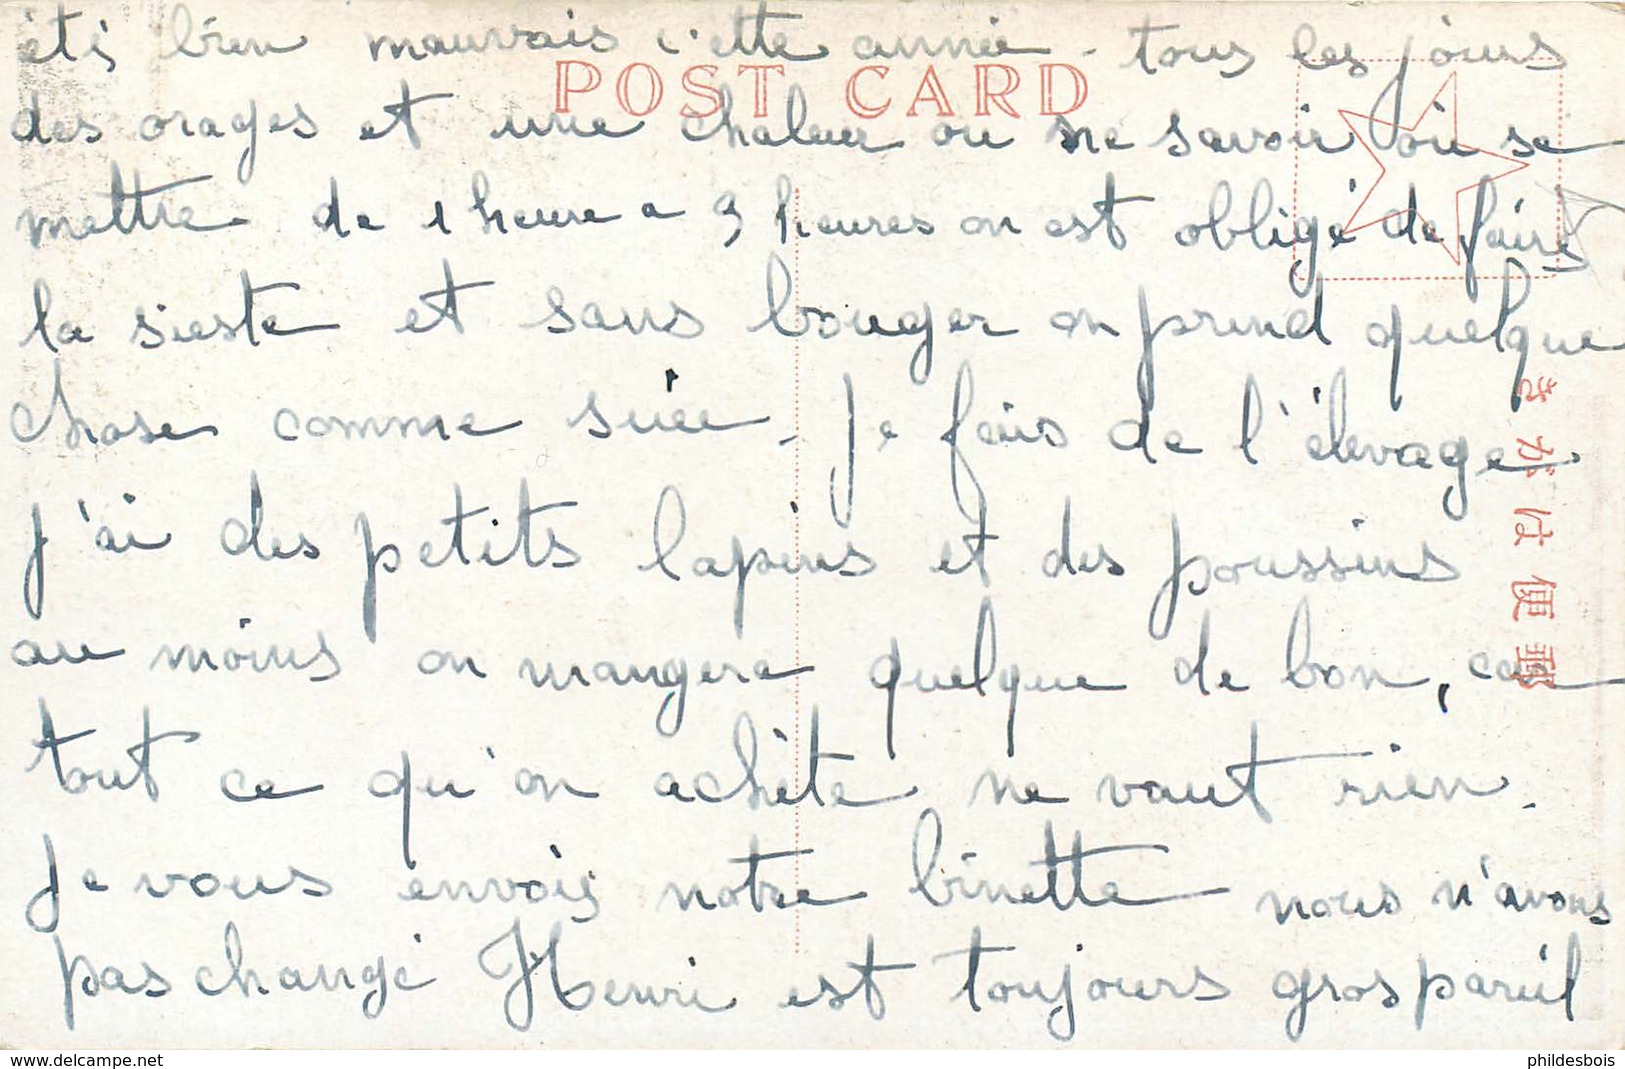 été bien mauvais cette année - tous les jours
POST CARD
des orages et une chaleur ou ne savoir où se
mettre - de 1 heure a 3 heures on est obligé de faire
la sieste et sans bouger on prend quelque
chose comme suée - Je fais de l'élevage
j'ai des petits lapins et des poussins
au moins on mangera quelque de bon, car
tout ce qu'on achète ne vaut rien.
Je vous envois notre binette nous n'avons
pas changé Henri est toujours gros pareil
郵便はがき
www.delcampe.net
phildesbois